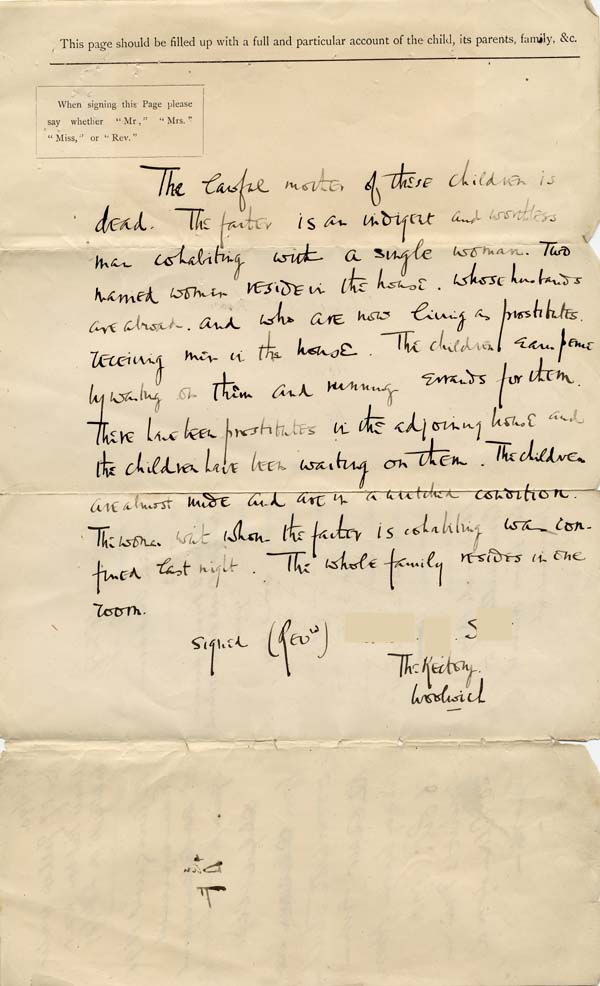 This page should be filled up with a full and particular account of the child, its parents, family, &c.
When signing this Page please
say whether "Mr," "Mrs."
"Miss," or "Rev."
The Careful mother of these children is
dead. The father is an indigent and worthless
man cohabiting with a single woman. Two
married women reside in the house. whose husbands
are abroad. and who are now living as prostitutes.
receiving men in the house. The children earn pence
by waiting on them and running errands for them.
There have been prostitutes in the adjoining house and
the children have been waiting on them. The children
are almost nude and are in a wretched condition.
The woman with whom the father is cohabiting was con-
fined last night. The whole family resides in one
room.
Signed (Revd) S
The Rectory.
Woolwich